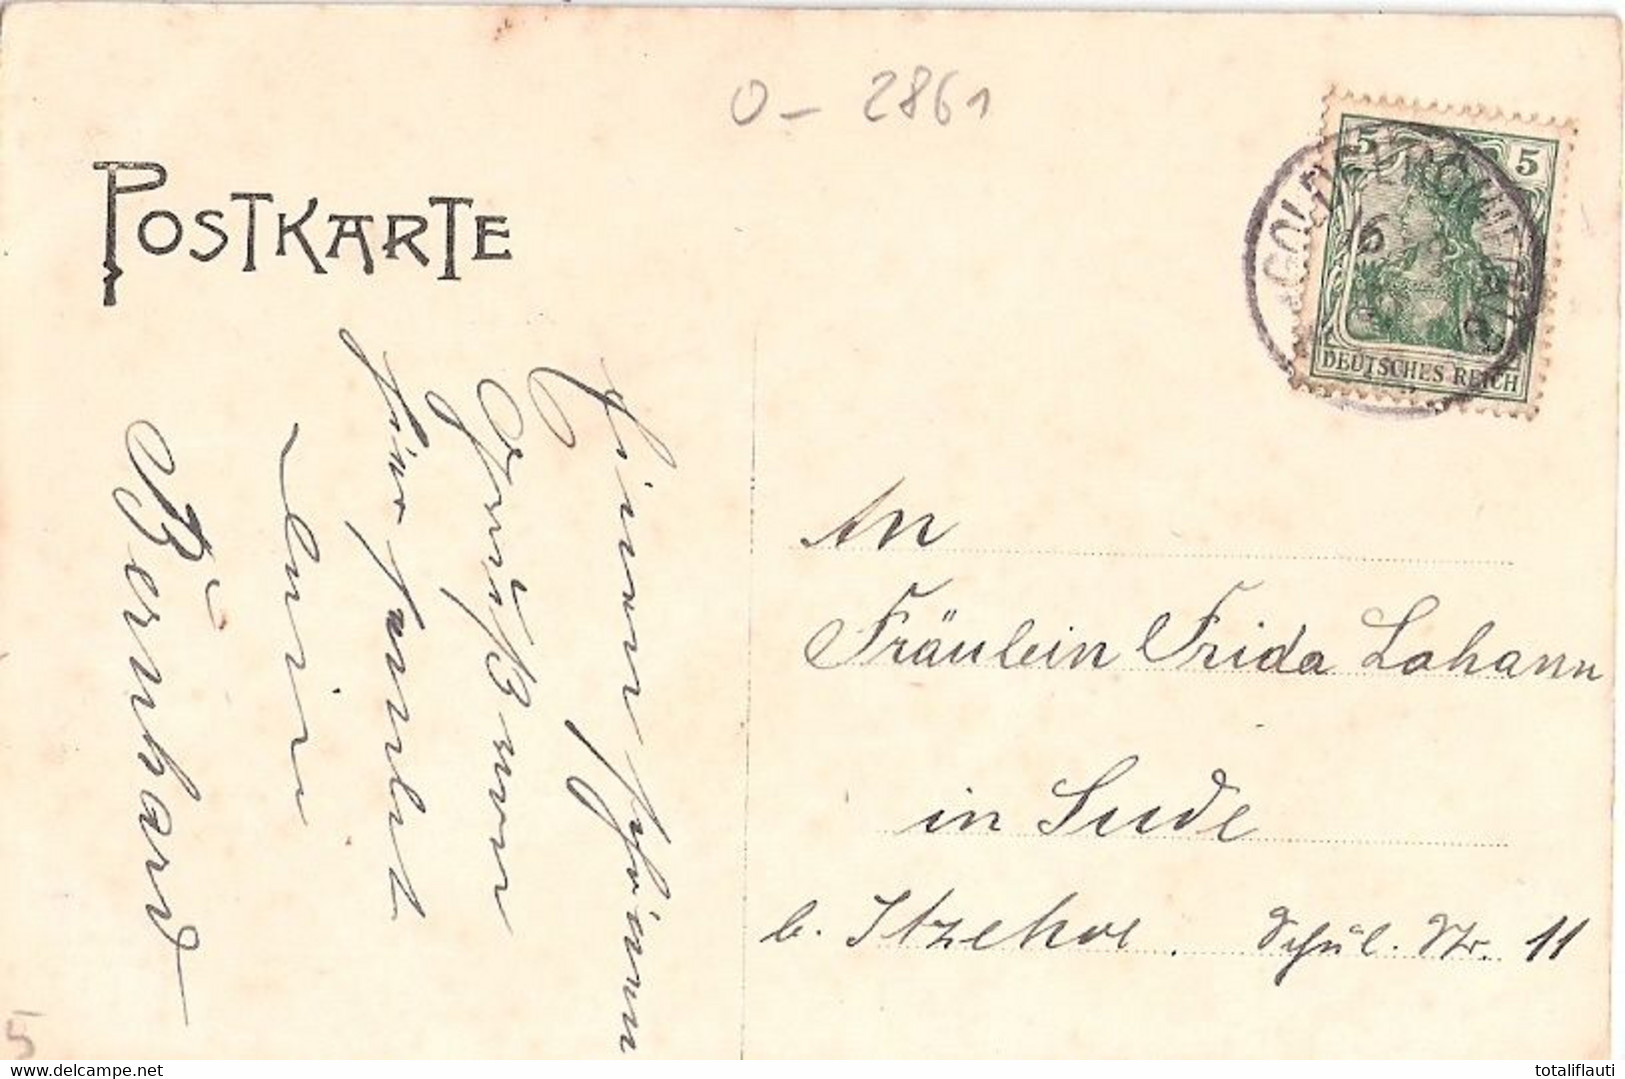 O - 2861
POSTKARTE
5 5
DEUTSCHES REICH
GOLD
Einen schönen
Gruß von
hier sendet
Dein
Bernhard
An
Fräulein Frida Lahann
in Sude
b. Itzehoe. Schul. Str. 11
5
www.delcampe.net
totaliflauti